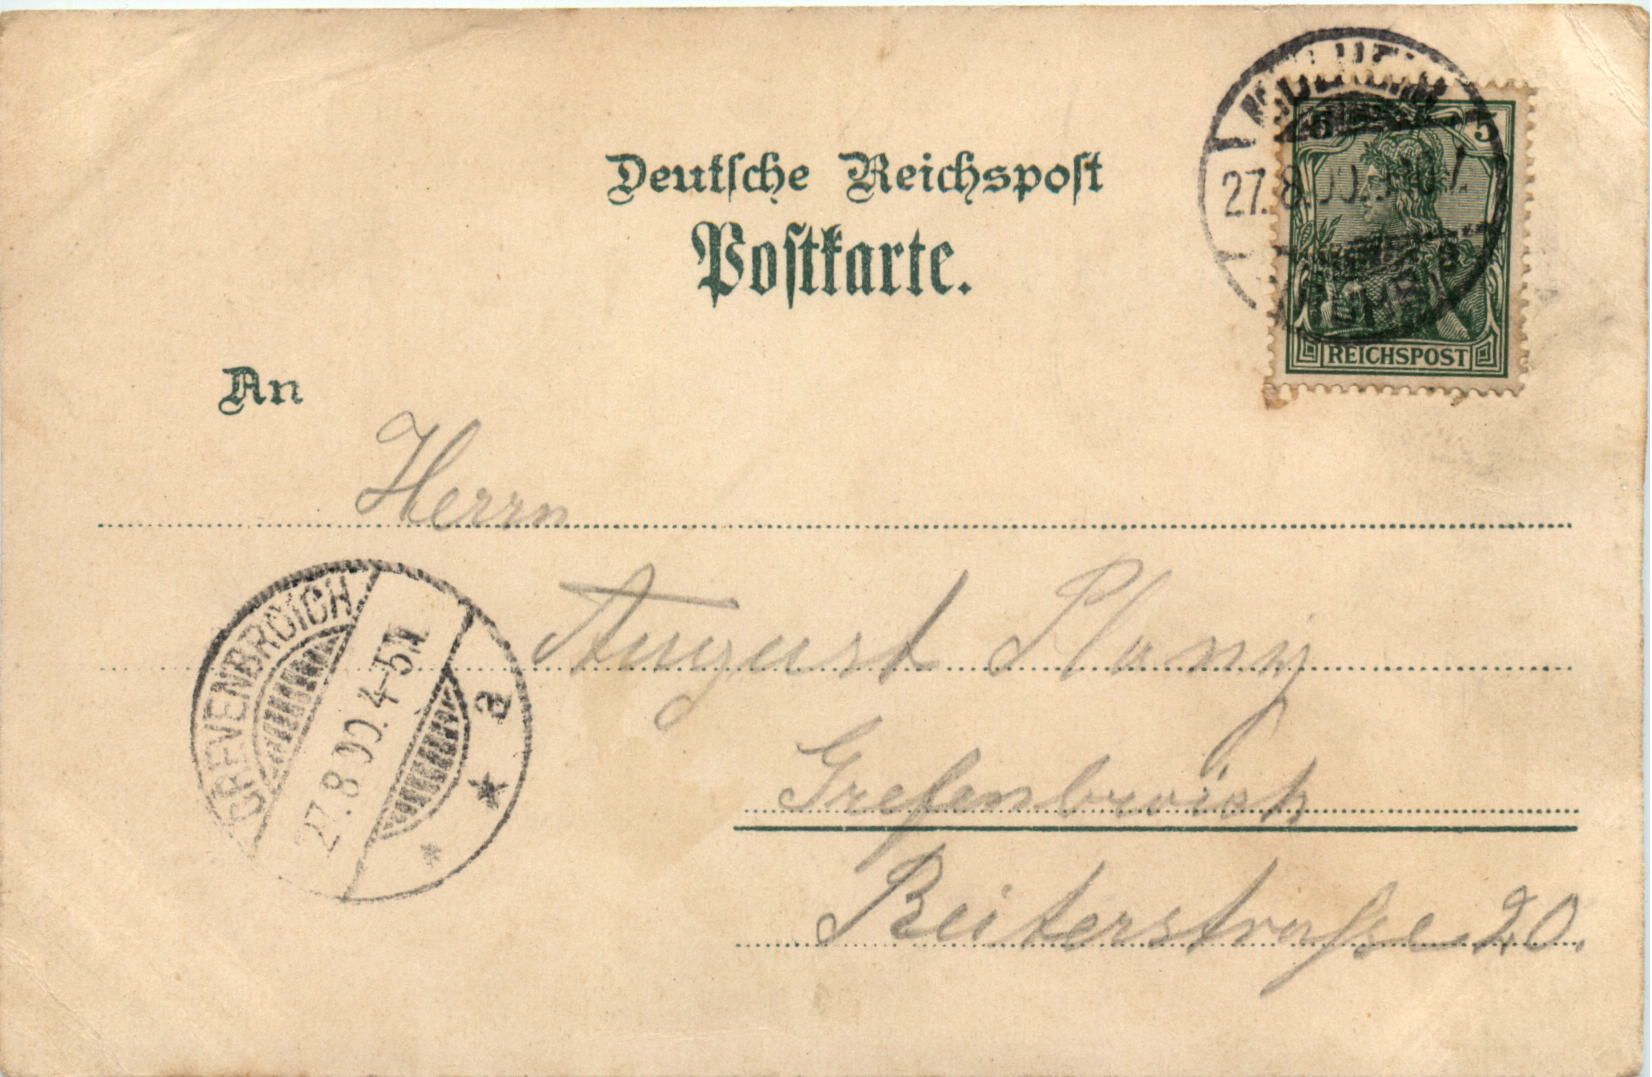 Deutsche Reichspost
Postkarte.
5
27.8.00.
REICHSPOST
An
Herrn
August
Grefenbroich
Reiterstraße 20.
GREVENBROICH
27.8.00.4-5N.
a